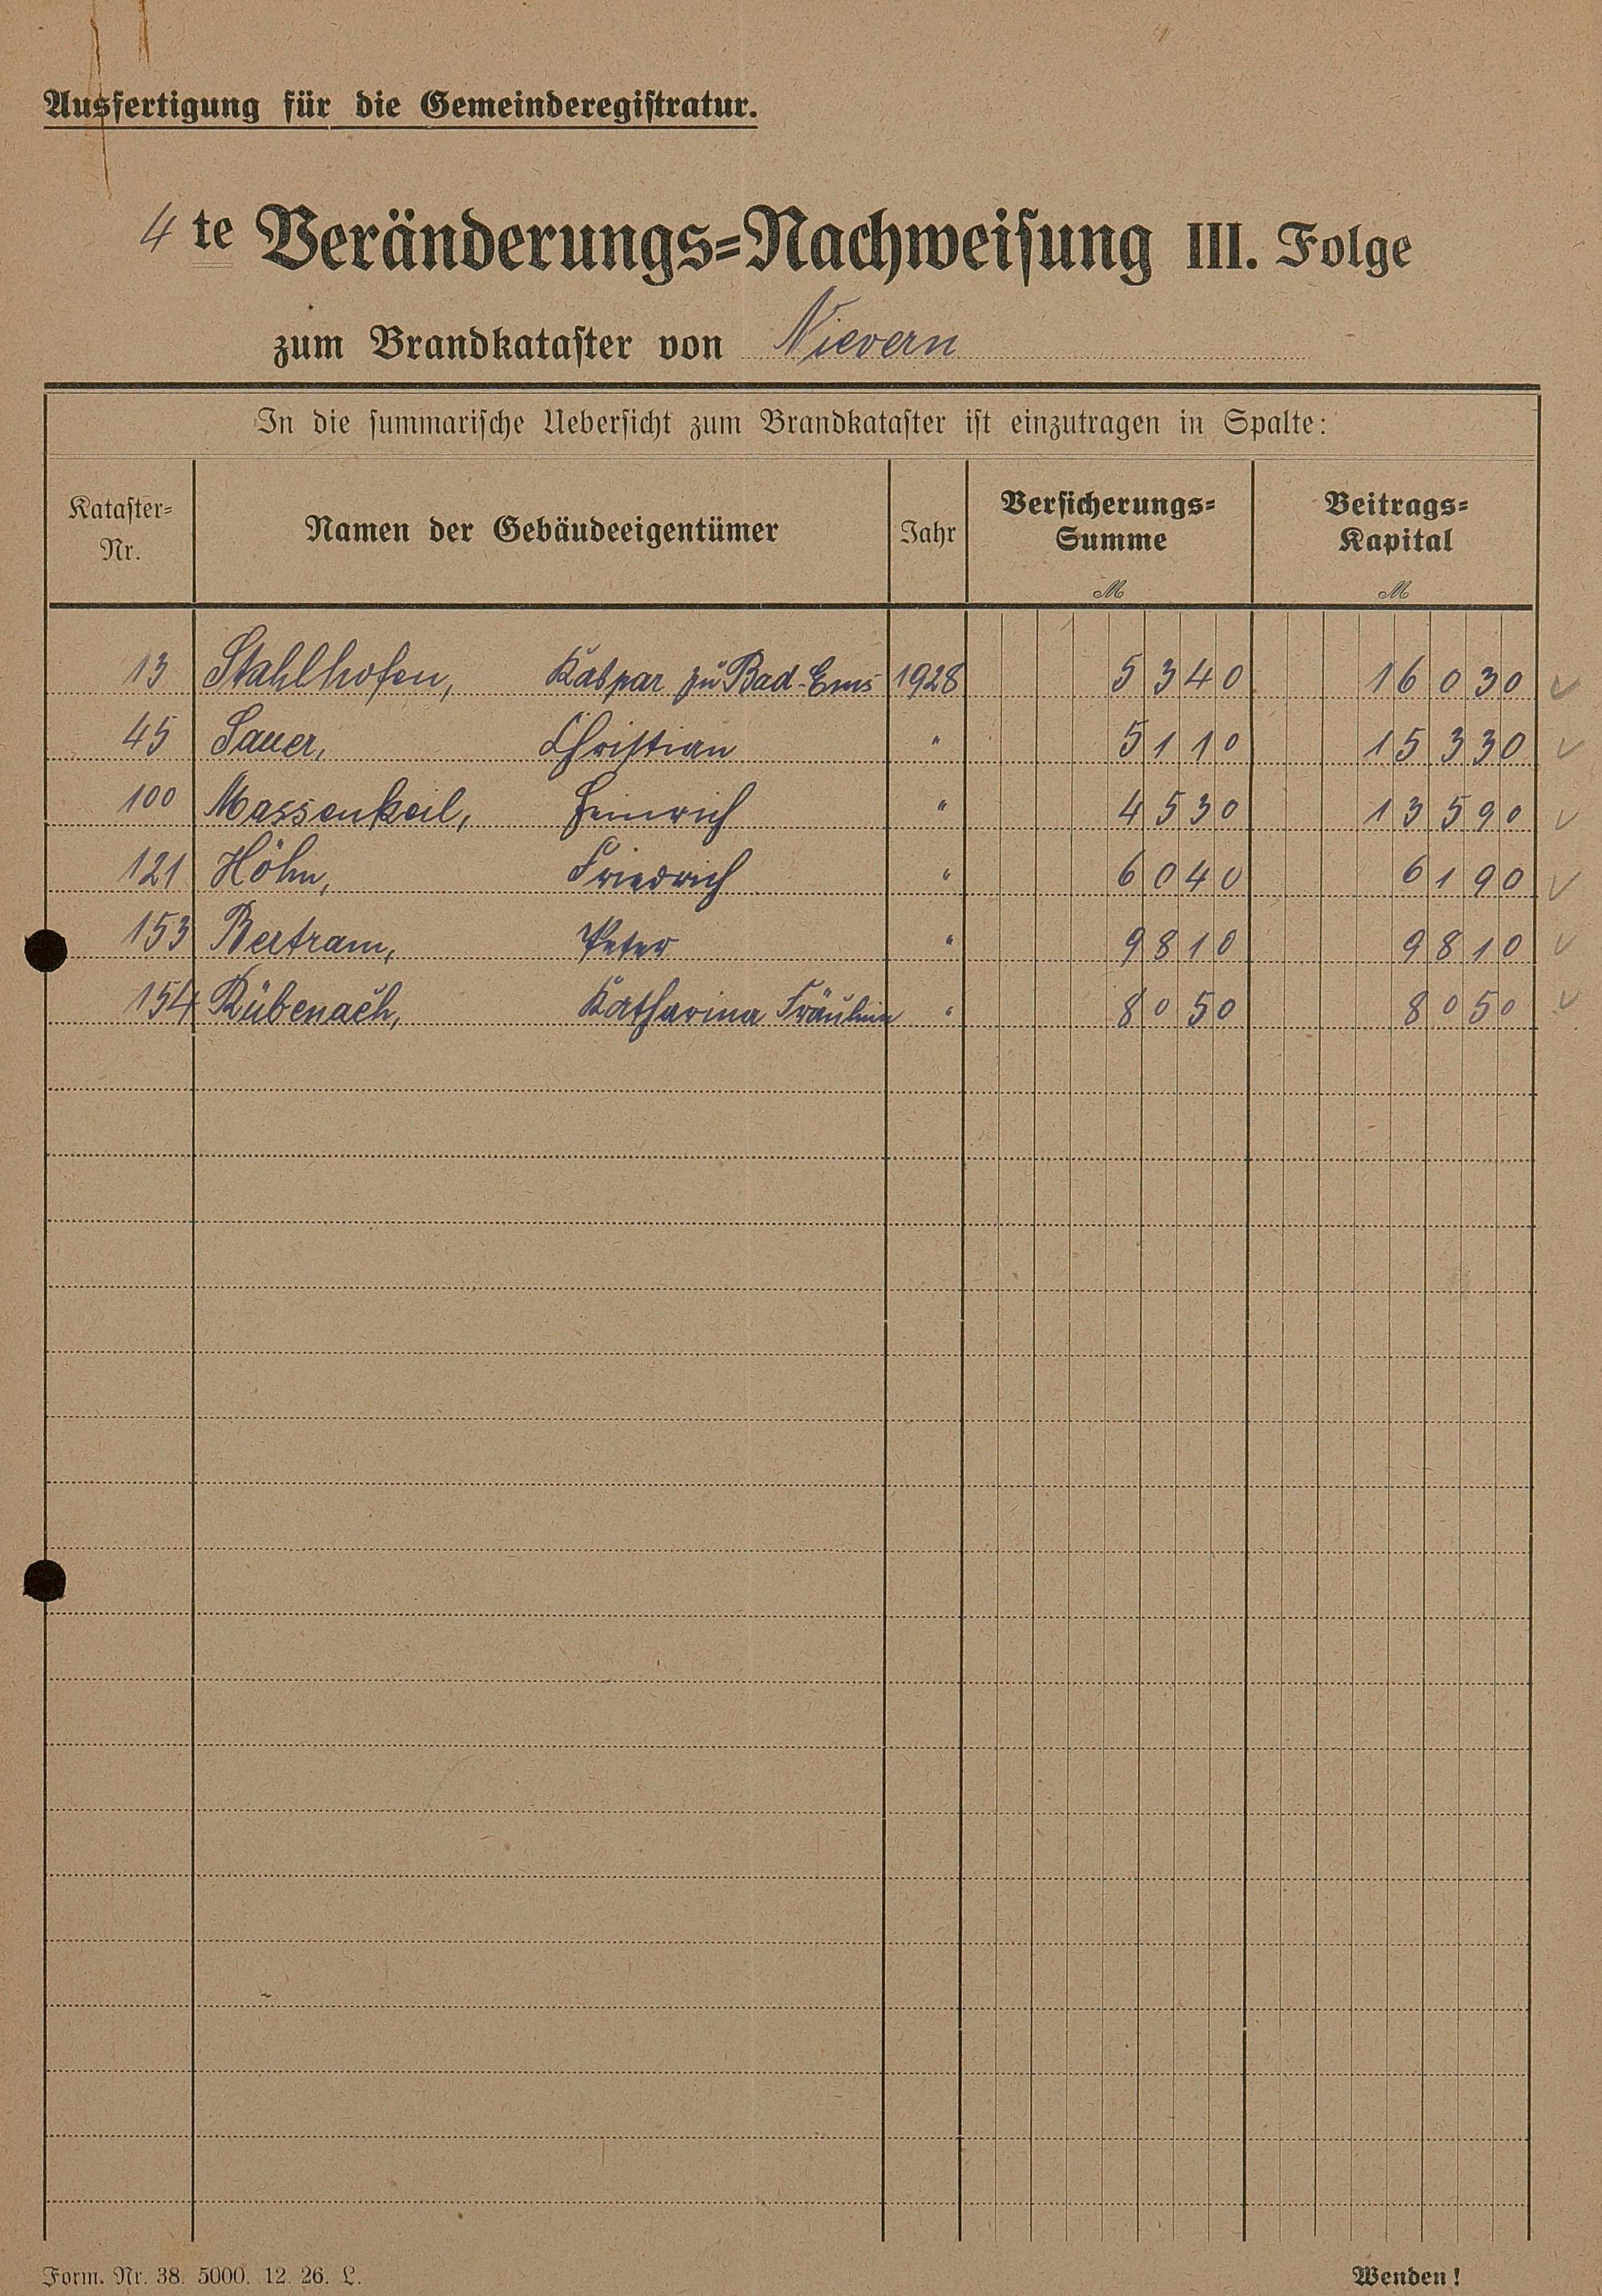 Ausfertigung für die Gemeinderegistratur.
4 te Veränderungs=Nachweisung III. Folge
zum Brandkataster von Nievern
In die summarische Uebersicht zum Brandkataster ist einzutragen in Spalte:
Kataster=Nr. Namen der Gebäudeeigentümer Jahr Versicherungs=Summe M Beitrags=Kapital M
13 Stahlhofen, Kaspar zu Bad-Ems 1928 5340 16030 ✓
45 Sauer, Christian " 5110 15330 ✓
100 Massenkeil, Heinrich " 4530 13590 ✓
121 Höhn, Friedrich " 6040 6190 ✓
153 Bertram, Peter " 9810 9810 ✓
154 Rübenach, Katharina Fräulein " 8050 8050 ✓
Form. Nr. 38. 5000. 12. 26. L.
Wenden!